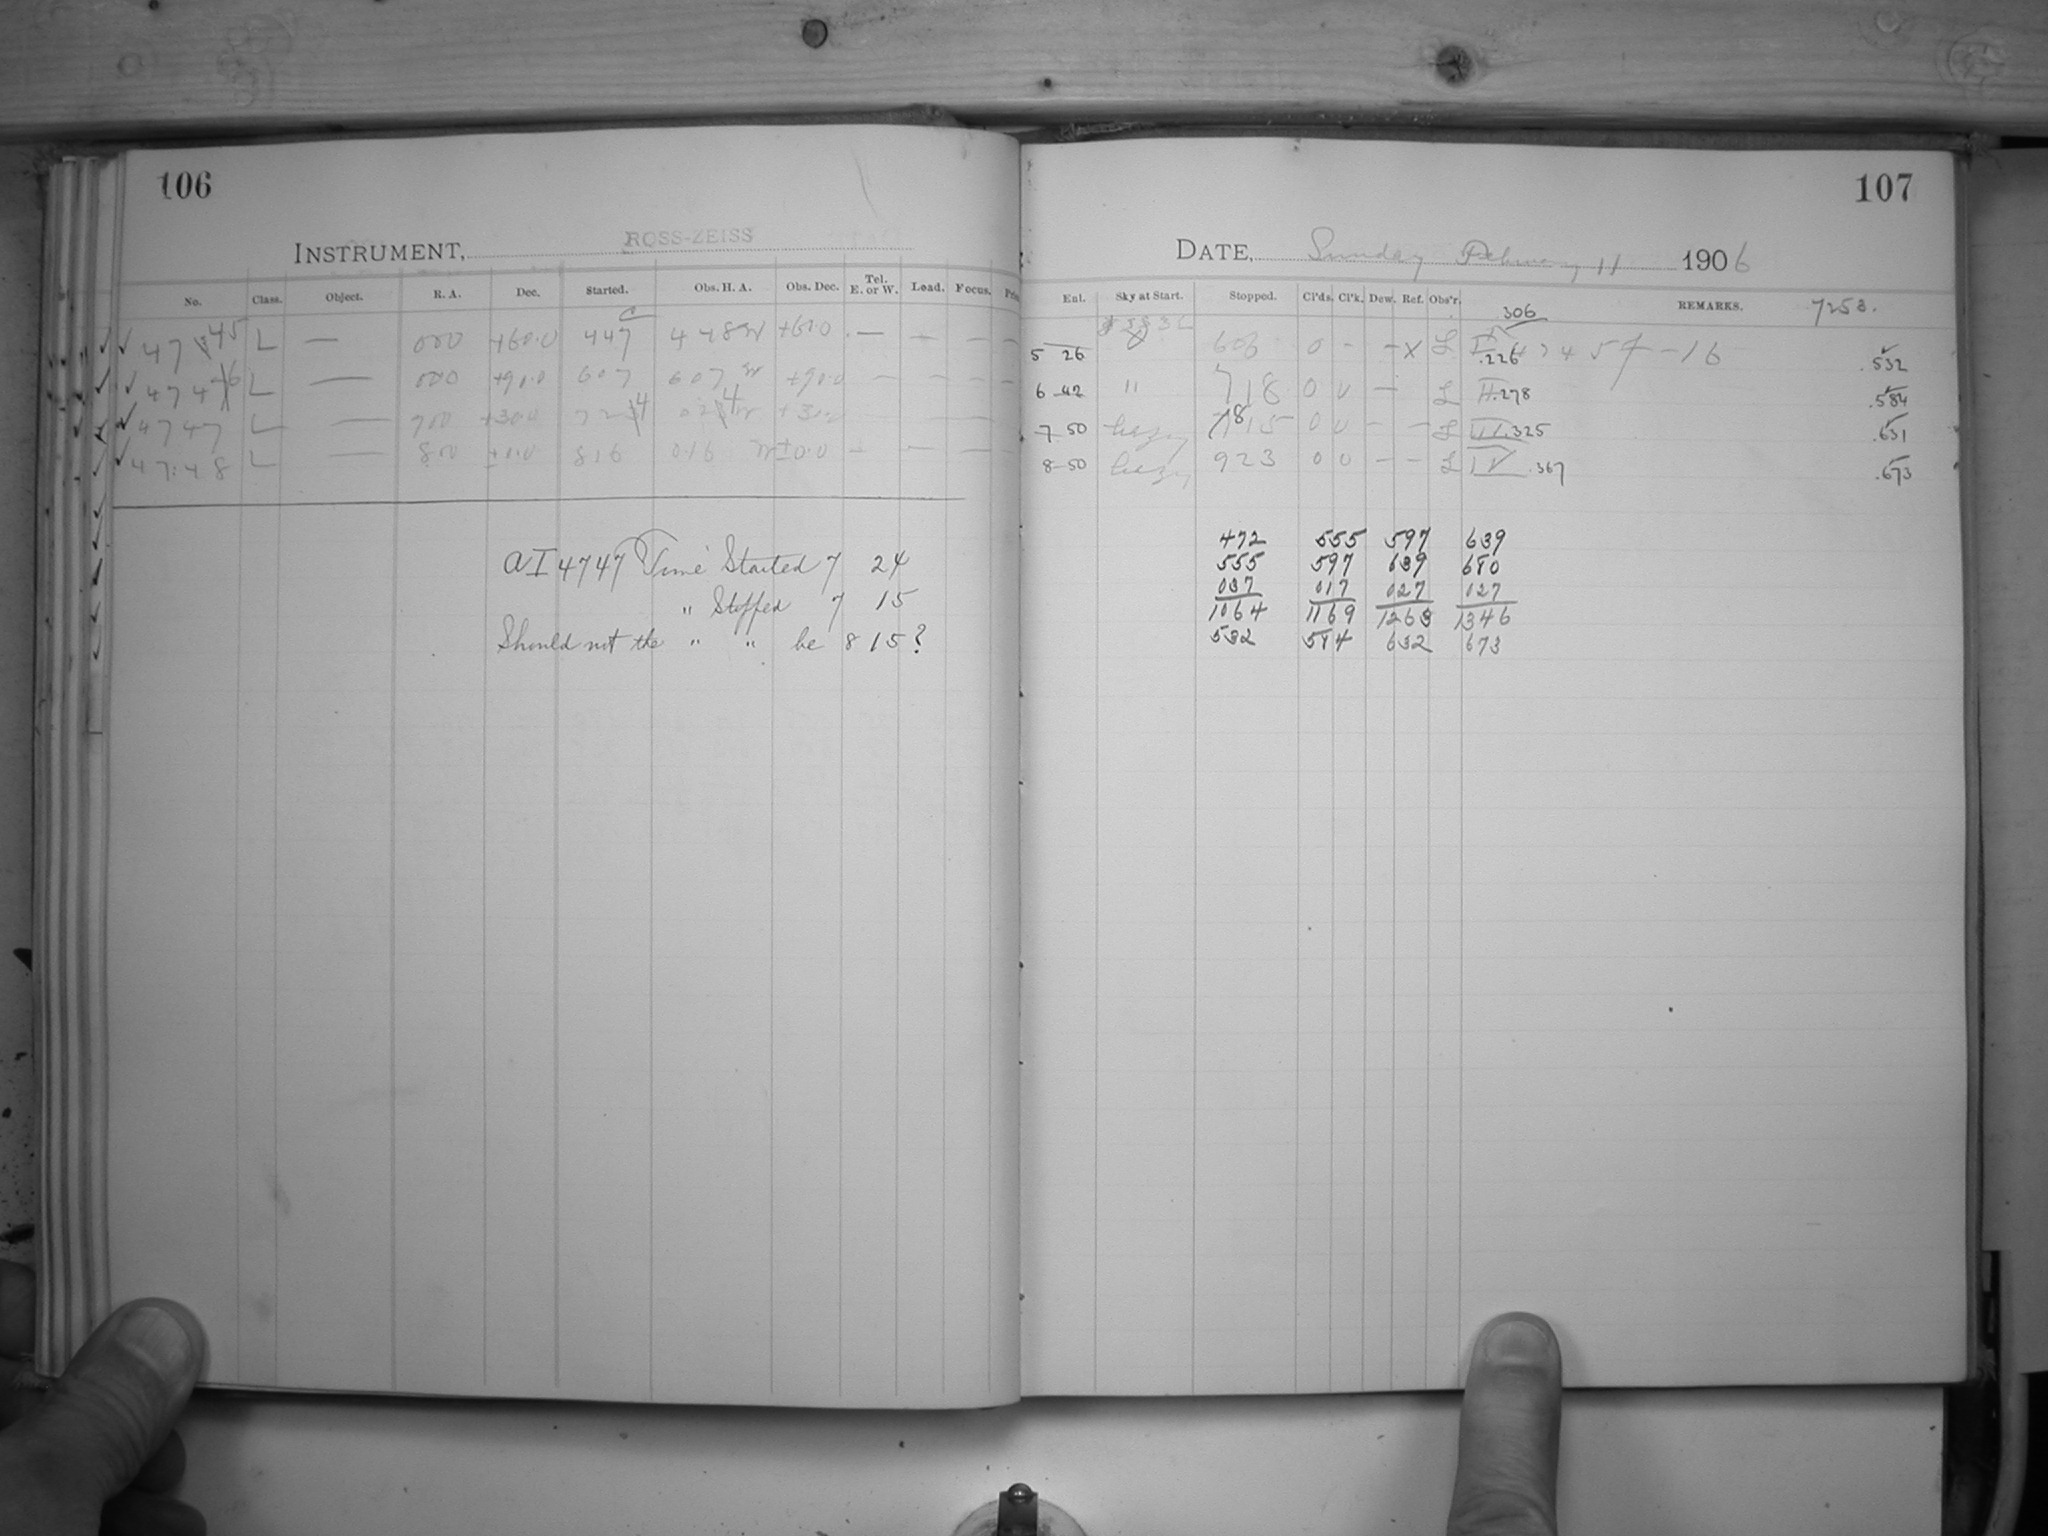 106
INSTRUMENT, ROSS-ZEISS
No. Class. Object. R. A. Dec. Started. Obs. H. A. Obs. Dec. Tel. E. or W. Load. Focus.
47 45 L — 000 +60.0 447 448 W +60.0 — — — —
474 6 L — 000 +90.0 607 607 W +90.0 — — — —
4747 L — 700 +30.0 724 024 W +30.0 — — — —
4748 L — 800 ±0.0 816 016 W ±0.0 — — — —
AI 4747 Time Started 7 24
" Stopped 7 15
Should not the " " be 8 15?
107
DATE, Sunday February 11 1906
Ent. Sky at Start. Stopped. Cl'ds. Cl'k. Dew. Ref. Obs'r. 306 REMARKS. 7253.
5 26 606 0 - - X L .226 - 16 .532
6 42 " 718 0 0 — L II .278 .584
7 50 hazy 815 0 0 - - L III .325 .631
8 50 hazy 923 0 0 - - L IV .367 .673
472 555 597 639
555 597 639 680
037 017 027 027
1064 1169 1263 1346
532 584 632 673